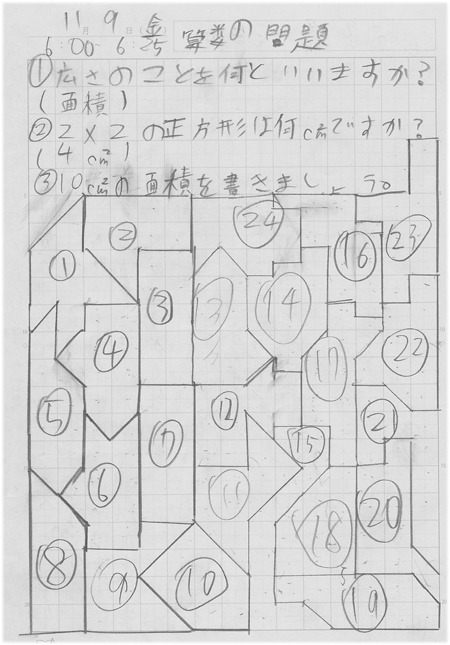 11月9日(金)
6:00 6:25 算数の問題
①広さのことを何といいますか?
(面積)
②2×2の正方形は何cm²ですか?
(4cm²)
③10cm²の面積を書きましょう
24
23
16
②
①
③
13
14
④
17
22
⑤
12
21
⑦
15
⑥
11
18
20
⑧
⑨
10
19